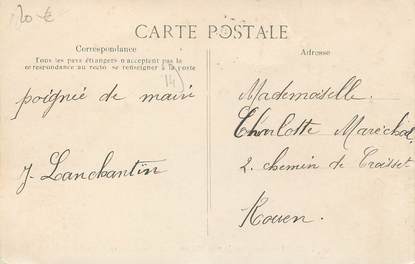 20 €
CARTE POSTALE
Correspondance
Tous les pays étrangers n'acceptent pas la
correspondance au recto se renseigner à la poste
14)
poignée de main
J. Lanchantin
Adresse
Mademoiselle
Charlotte Maréchal
2. chemin de Croisset
Rouen.